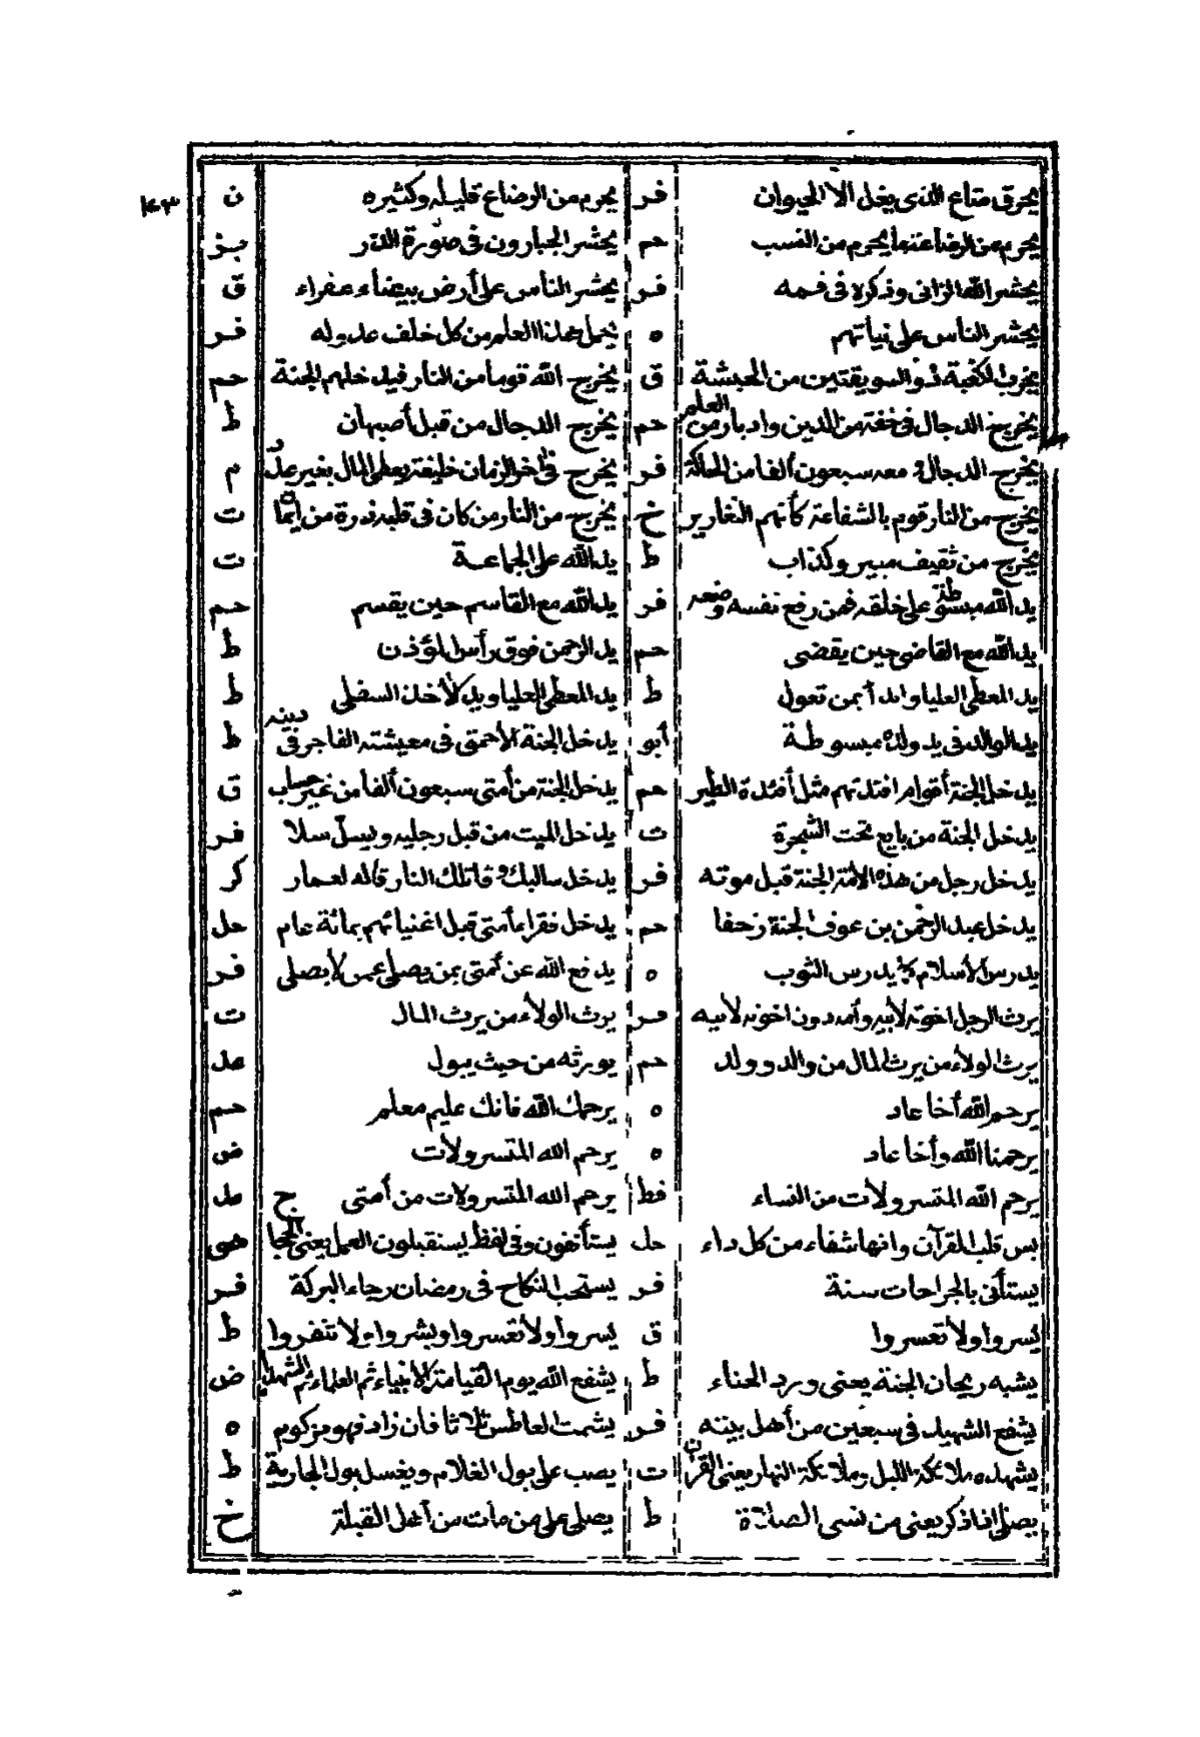 يحرق متاع الذى يغل الا الحيوان فر يحرم من الرضاع قليله وكثيره ن
يحرم من الرضاعة ما يحرم من النسب حم يحشر الجبارون فى صورة الذر بز
يحشر الله الزانى وذكره فى فمه فر يحشر الناس على أرض بيضاء عفراء ق
يحشر الناس على نياتهم ه يحمل هذا العلم من كل خلف عدوله فر
يخرب الكعبة ذو السويقتين من الحبشة ق يخرج الله قوما من النار فيدخلهم الجنة حم
يخرج الدجال فى خفة من الدين وادبار من العلم حم يخرج الدجال من قبل أصبهان ط
يخرج الدجال ومعه سبعون ألفا من الحاكة فر يخرج فى اخر الزمان خليفة يعطى المال بغير عدد م
يخرج من النار قوم بالشفاعة كأنهم الثغارير خ يخرج من النار من كان فى قلبه ذرة من ايمان ت
يخرج من ثقيف مبير وكذاب ط يد الله على الجماعة ت
يد الله مبسوطة على خلقه فمن رفع نفسه وضعه فر يد الله مع القاسم حين يقسم حم
يد الله مع القاضى حين يقضى حم يد الرحمن فوق رأس المؤذن ط
يد المعطى العليا وابدأ بمن تعول ط يد المعطى العليا ويد الأخذ السفلى ط
يد الوالد فى يد ولده مبسوطة أبو يدخل الجنة الأحمق فى معيشته الفاجر فى دينه ط
يدخل الجنة أقوام افئدتهم مثل أفئدة الطير حم يدخل الجنة من أمتى سبعون ألفا من غير حساب ق
يدخل الجنة من بايع تحت الشجرة ت يدخل الميت من قبل رجليه ويسل سلا فر
يدخل رجل من هذه الامة الجنة قبل موته فر يدخل سالبك وقاتلك النار قاله لعمار كر
يدخل عبد الرحمن بن عوف الجنة زحفا حم يدخل فقراء أمتى قبل اغنيائهم بمائة عام حل
يدرس الأسلام كما يدرس الثوب ه يدفع الله عن أمتى بمن يصلى عمن لا يصلى فر
يرث الرجل اخوته لأبيه وأمه دون اخوته لأبيه فر يرث الولاء من يرث المال ت
يرث الولاء من يرث المال من والد وولد حم يورثه من حيث يبول عد
يرحم الله أخا عاد ه يرحمك الله فانك عليم معلم حم
يرحمنا الله وأخا عاد ه يرحم الله المتسرولات ض
يرحم الله المتسرولات من النساء قط يرحم الله المتسرولات من أمتى عد
يس قلب القرآن وانها شفاء من كل داء حل يستأنفون وفى لفظ يستقبلون العمل يعنى الحجاج هق
يستأنى بالجراحات سنة فر يستحب النكاح فى رمضان رجاء البركة فر
يسروا ولا تعسروا ق يسروا ولا تعسروا وبشروا ولا تنفروا ط
يشبه ريحان الجنة يعنى ورد الحناء ط يشفع الله يوم القيامة الانبياء ثم العلماء ثم الشهداء ض
يشفع الشهيد فى سبعين من أهل بيته فر يشمت العاطس ثلاثا فان زاد فهو مزكوم ه
يشهده ملائكة الليل وملائكة النهار يعنى القرآن ت يصب على بول الغلام ويغسل بول الجارية ط
يصلى اذا ذكر يعنى من نسى الصلاة ط يصلى على من مات من أهل القبلة خ